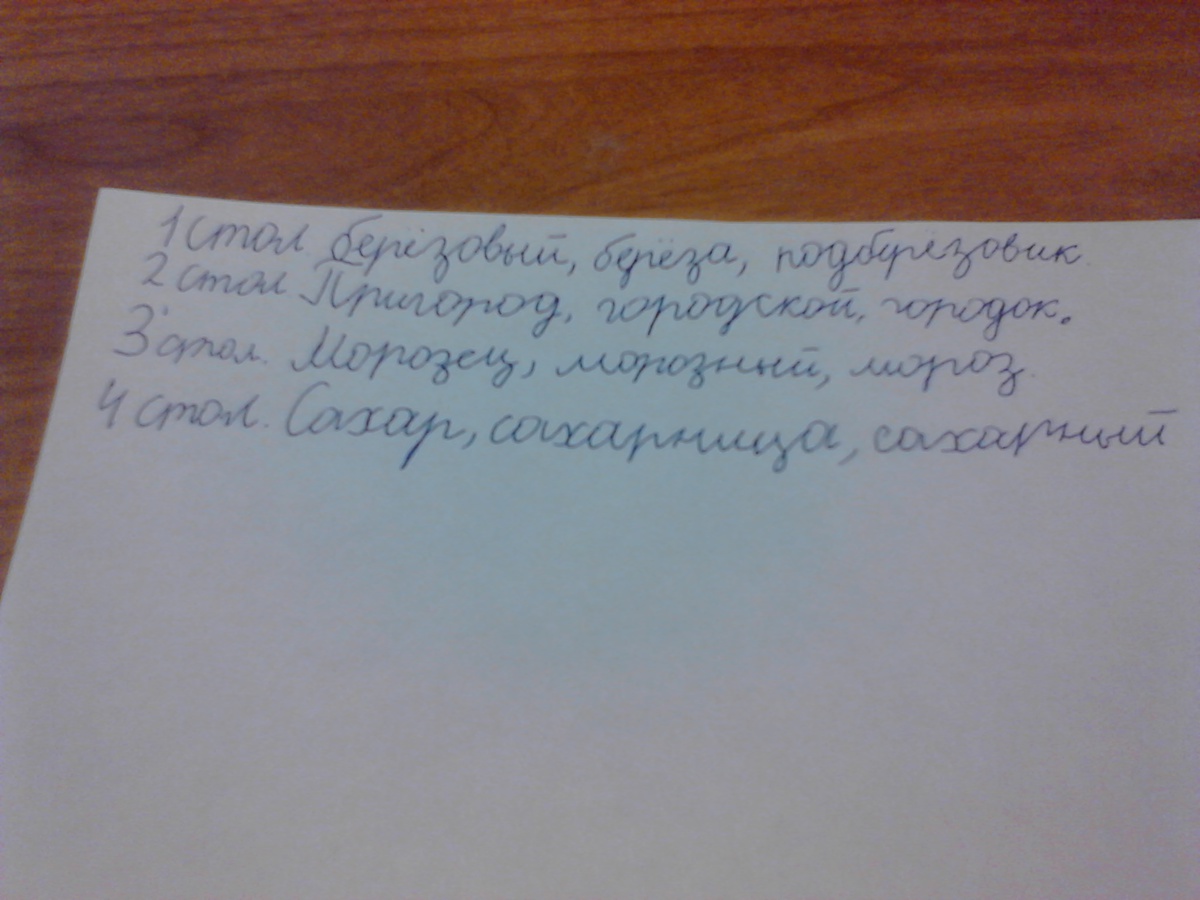 1 стол берёзовый, берёза, подберёзовик.
2 стол Пригород, городской, городок.
3 стол. Морозец, морозный, мороз.
4 стол. Сахар, сахарница, сахарный